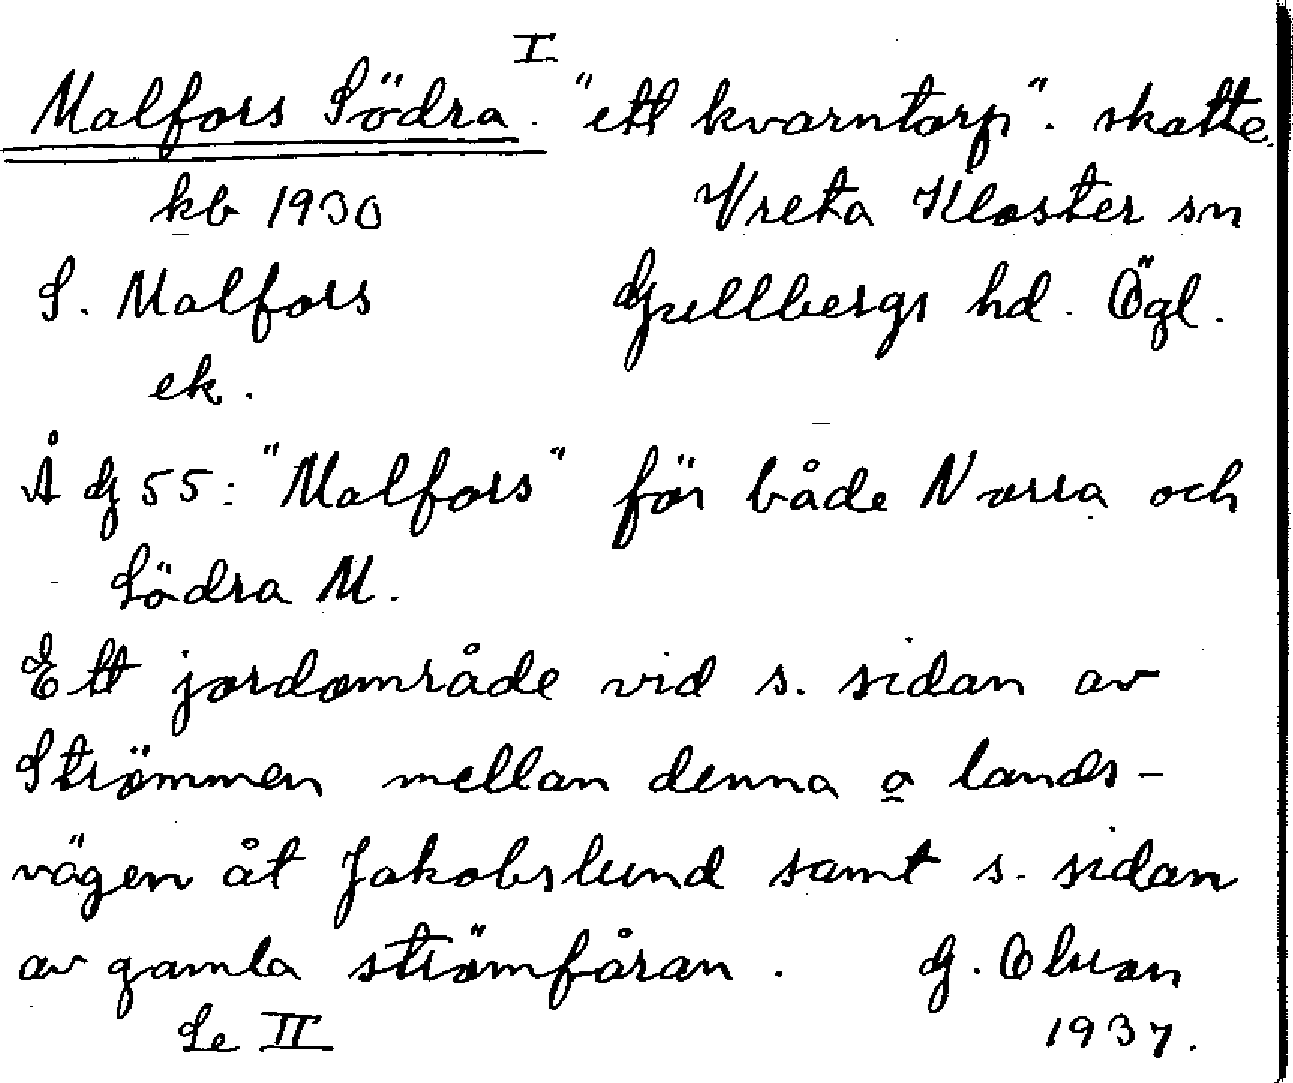 I
Malfors Södra. "ett kvarntorp". skatte.
kb 1930 Vreta Kloster sn
S. Malfors Gullbergs hd. Ögl.
ek.
Å G 55: "Malfors" för både Norra och
Södra M.
Ett jordområde vid s. sidan av
Strömmen mellan denna o lands-
vägen åt Jakobslund samt s. sidan
av gamla strömfåran. G. Olsson
Se II 1937.